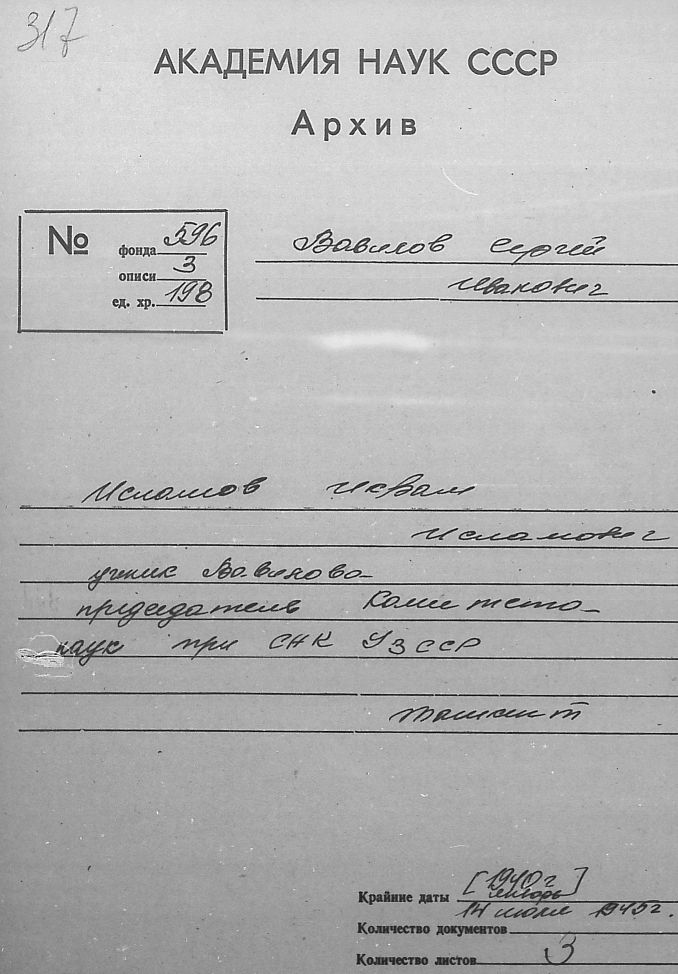 317
АКАДЕМИЯ НАУК СССР
Архив
№ фонда 596
описи 3
ед. хр. 198
Вавилов Сергей
Иванович
Исламов Икрам
Исламович
ученик Вавилова
председатель Комитета
наук при СНК УзССР
Ташкент
Крайние даты [1940 г январь]
14 июля 1945 г.
Количество документов
Количество листов 3